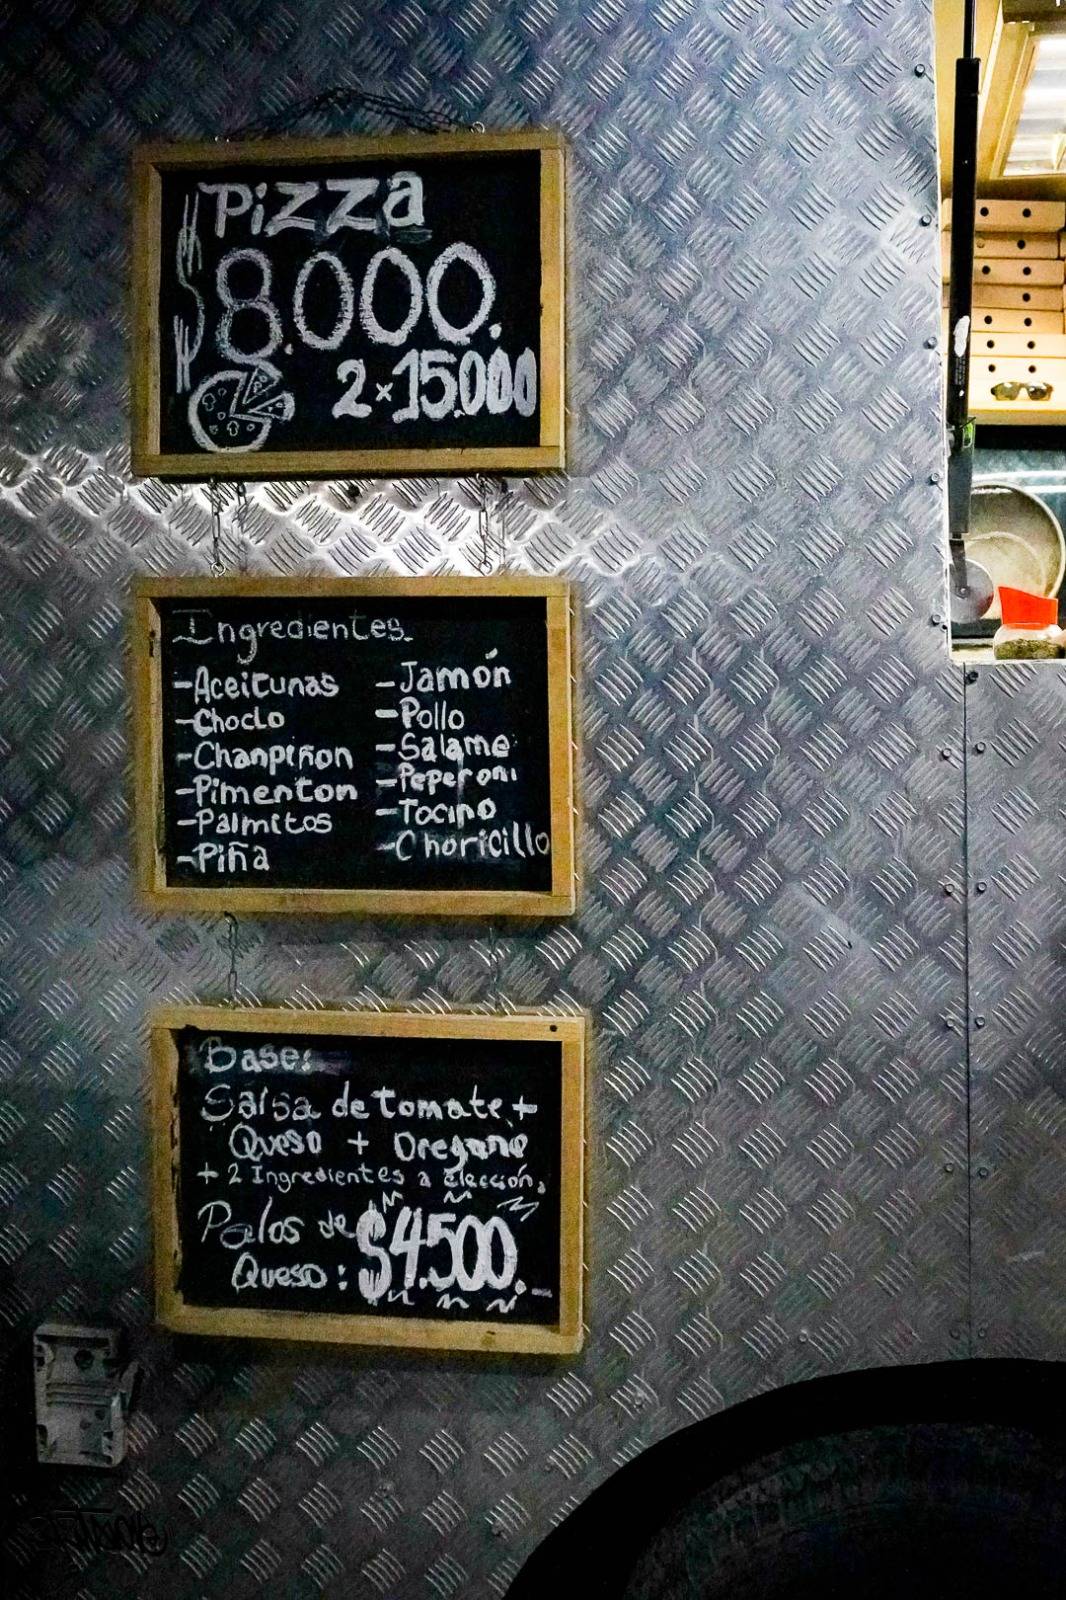 Pizza
$8.000.
2x15.000
Ingredientes
-Aceitunas
-Choclo
-Chanpiñon
-Pimenton
-Palmitos
-Piña
-Jamón
-Pollo
-Salame
-Peperoni
-Tocino
-Choricillo
Base:
Salsa de tomate +
Queso + Oregano
+ 2 Ingredientes a elección,
Palos de $4.500.-
Queso: